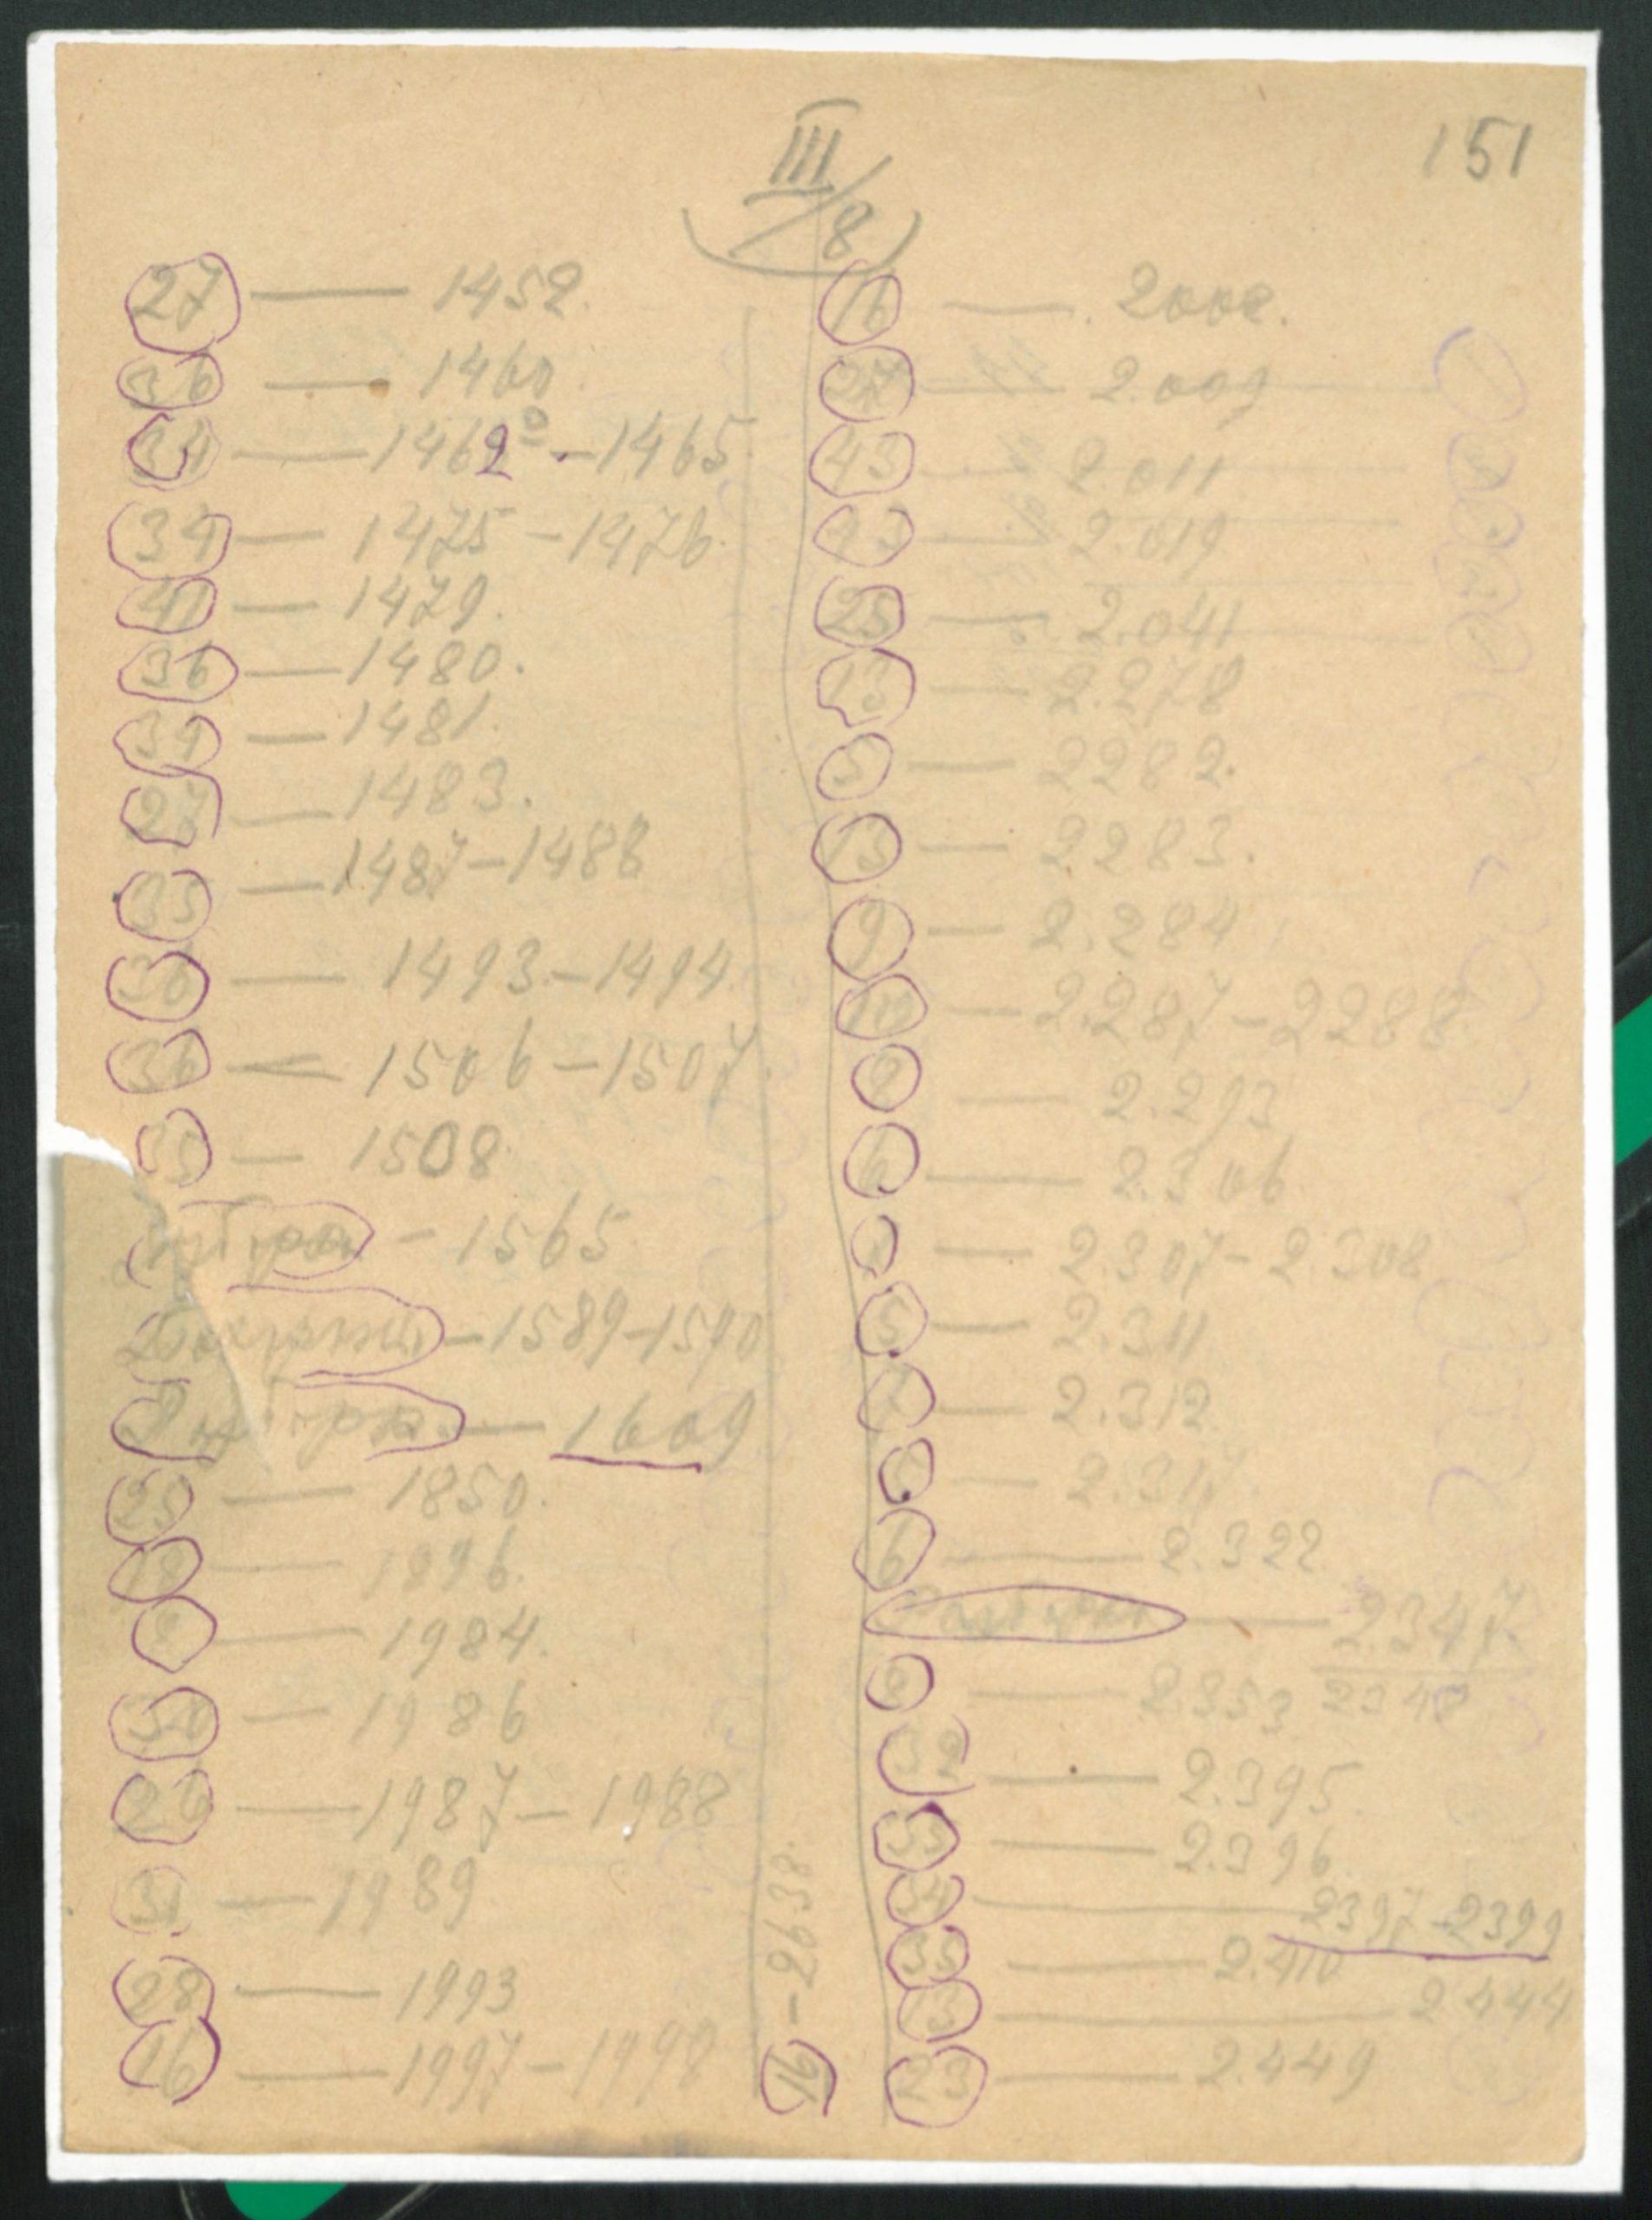 151
III/8
(27) — 1452.
(36) — 1460
— 1462⁰ - 1465.
(34) — 1475 - 1476.
(41) — 1479.
(36) — 1480.
(34) — 1481.
(27) — 1483.
(35) — 1487 - 1488
(36) — 1493 - 1494.
(36) — 1506 - 1507.
(35) — 1508.
— 1565
— 1589 - 1590
— 1609
(25) — 1850.
(18) — 1896.
— 1984.
— 1986
— 1987 - 1988
(31) — 1989
(28) — 1993
(16) — 1997 - 1998
(16) - 2638.
(16) — 2008.
(27) — 2.009
(43) — 2.011
— 2.019
(25) — 2.041
(13) — 2.278
(5) — 2282.
(13) — 2283.
(9) — 2.284
(10) — 2.287 - 2288.
(9) — 2.293
(6) — 2.306
— 2.307 - 2.308
(5) — 2.311
(7) — 2.312.
— 2.317.
(6) — 2.322
— 2.347.
— 2.353 2348
(32) — 2.395
(33) — 2.396.
(34) — 2397 - 2399
(35) — 2.410
(13) — 2.444
(23) — 2.449